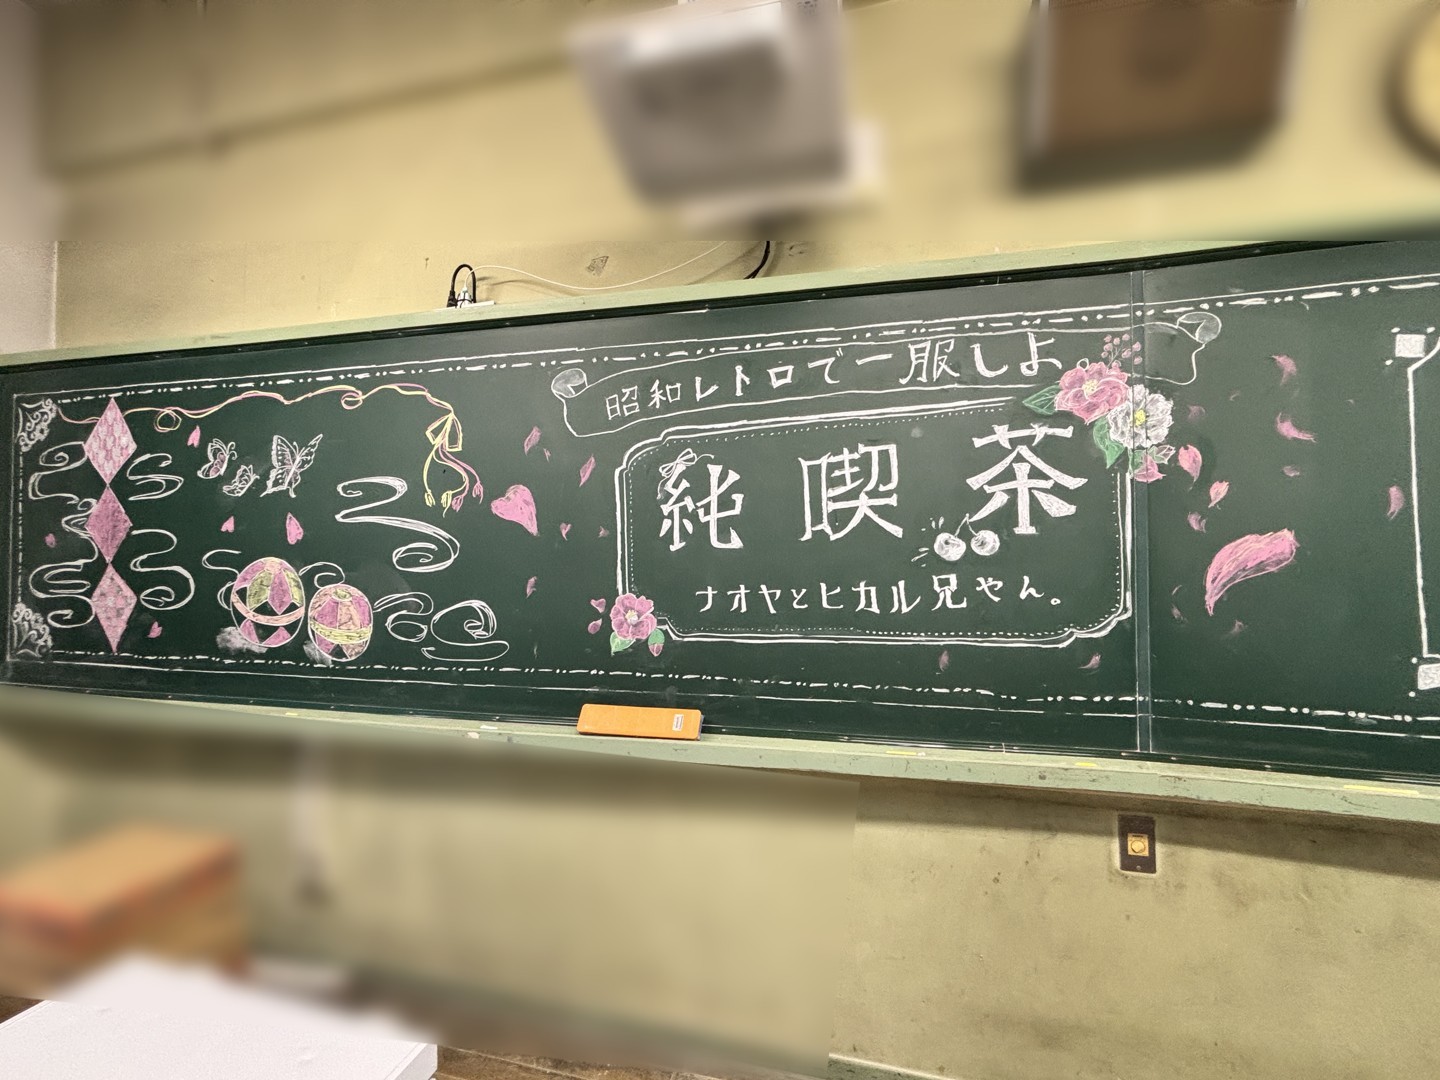 昭和レトロで一服しよ
純喫茶
ナオヤとヒカル兄やん。